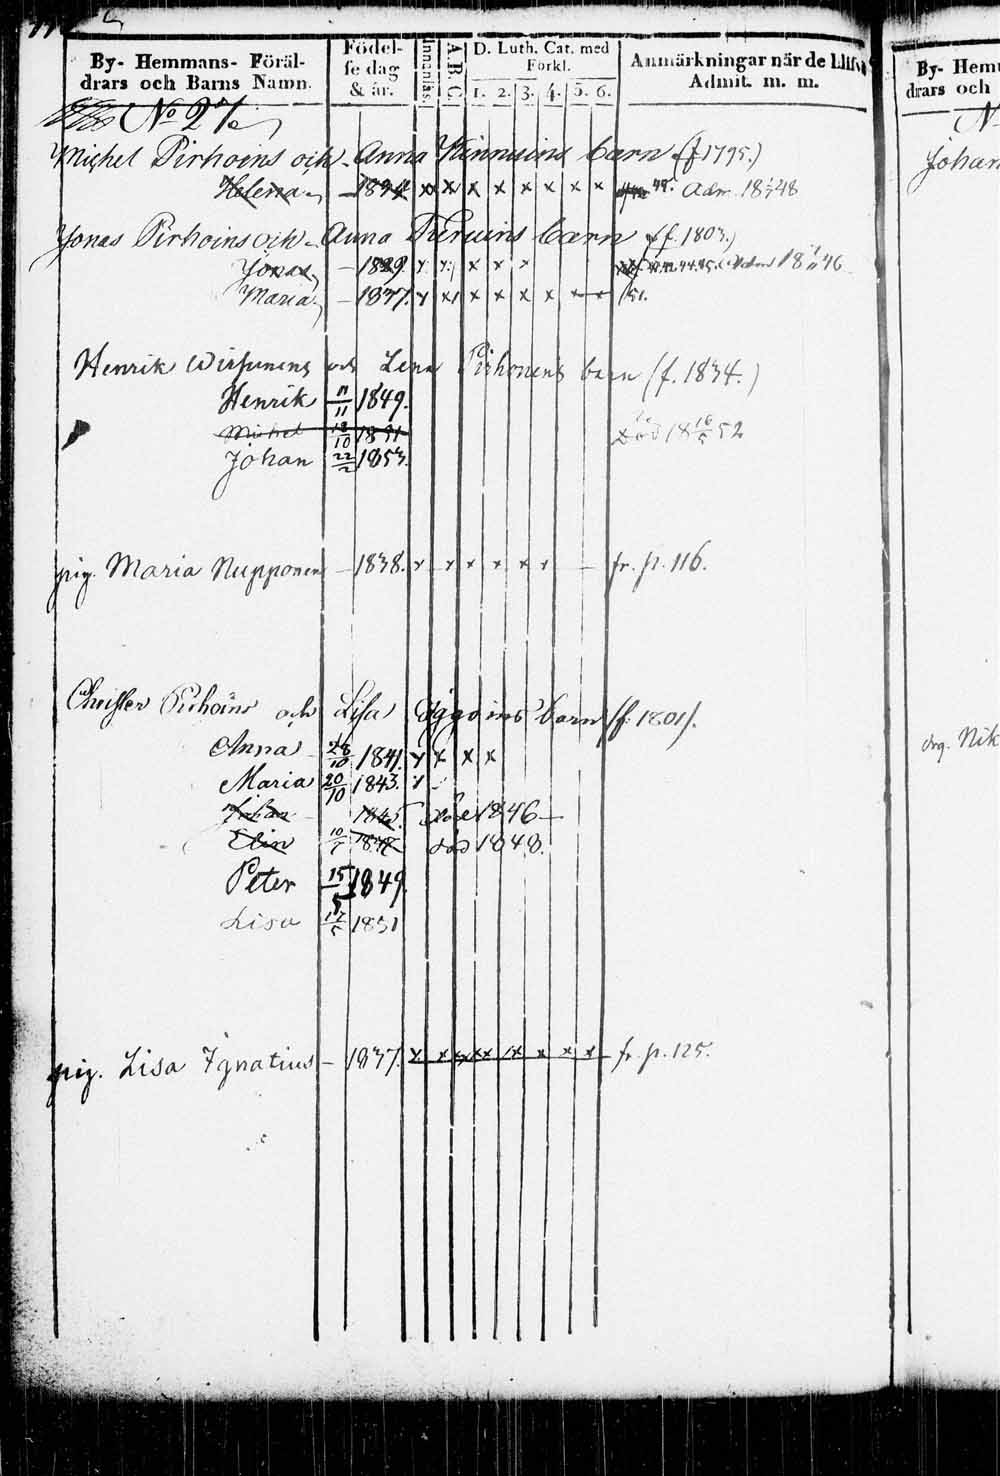 By- Hemmans- Föräl-
drars och Barns Namn.
Födel-
se dag
& år.
Innanläs.
A B C.
D. Luth. Cat. med
Förkl.
1. 2. 3. 4. 5. 6.
Anmärkningar när de blifv
Admit. m. m.
By- Hem
drars och
No 27
Michel Pirhoins och Anna Kinnuins barn (f 1795.)
Helena - 1834 x x x x x x x x 48. Adm. 18 48
Jonas Pirhoins och Anna barn (f. 1803.)
Jonas - 1829. x x x x x 18 46
Maria - 1837. x x x x x x x x 51.
Henrik Wirsunens och Lena Pirhonens barn (f. 1834.)
Henrik 11/11 1849.
Michel 12/10 1851 Död 18 16/5 52
Johan 22/2 1853.
pig. Maria Nupponen - 1838. x x x x x x - fr. p. 116.
Christer Pirhoins och Lisa barn (f. 1801).
Anna 28/10 1841. x x x x
Maria 20/10 1843. x
Johan 1845. död 1846
Elin 10/7 död 1848.
Peter 15/5 1849.
Lisa 17/5 1851
pig. Lisa Ignatius - 1837. x x x x x x x x x fr. p. 125.
Johan
drg. Nik